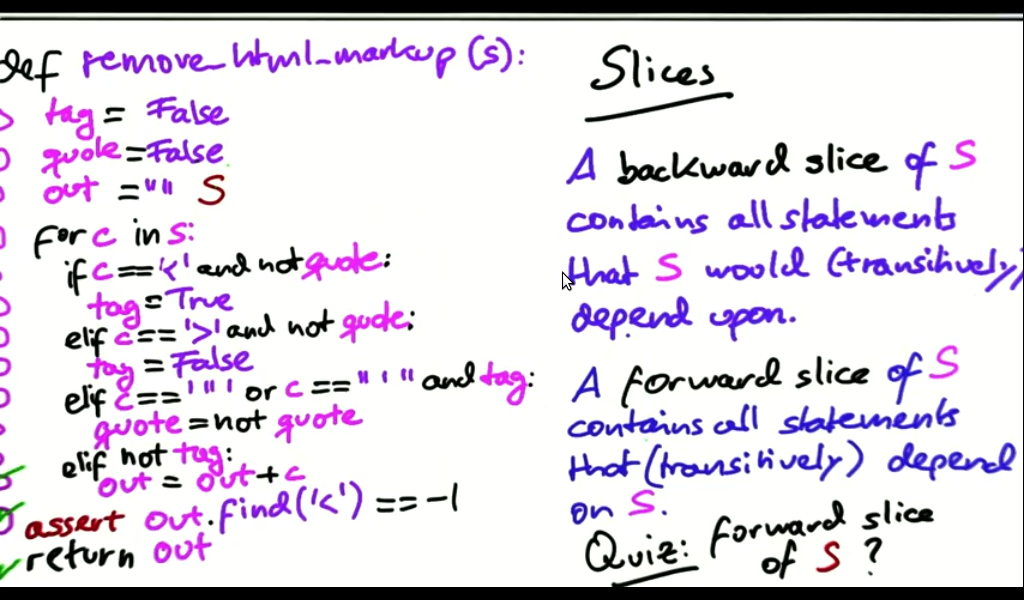 def remove_html_markup (s):
tag = False
quote = False
out = "" S
for c in s:
if c == '<' and not quote:
tag = True
elif c == '>' and not quote:
tag = False
elif c == '"' or c == "'" and tag:
quote = not quote
elif not tag:
out = out + c
assert out.find('<') == -1
return out
Slices
A backward slice of S
contains all statements
that S would (transitively)
depend upon.
A forward slice of S
contains all statements
that (transitively) depend
on S.
Quiz: forward slice
of S ?